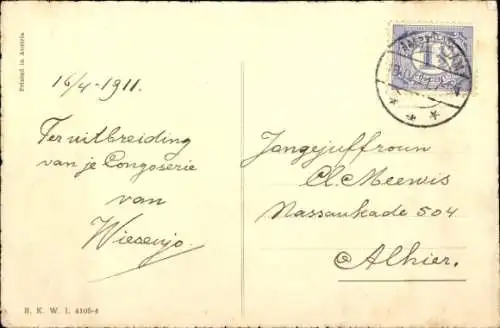 Printed in Austria.
16/4-1911.
Ter uitbreiding
van je Congoserie
van
Wiesenjo.
B. K. W. I. 4105-4
Jongejuffrouw
Cl. Meewis
Nassaukade 504
Alhier.